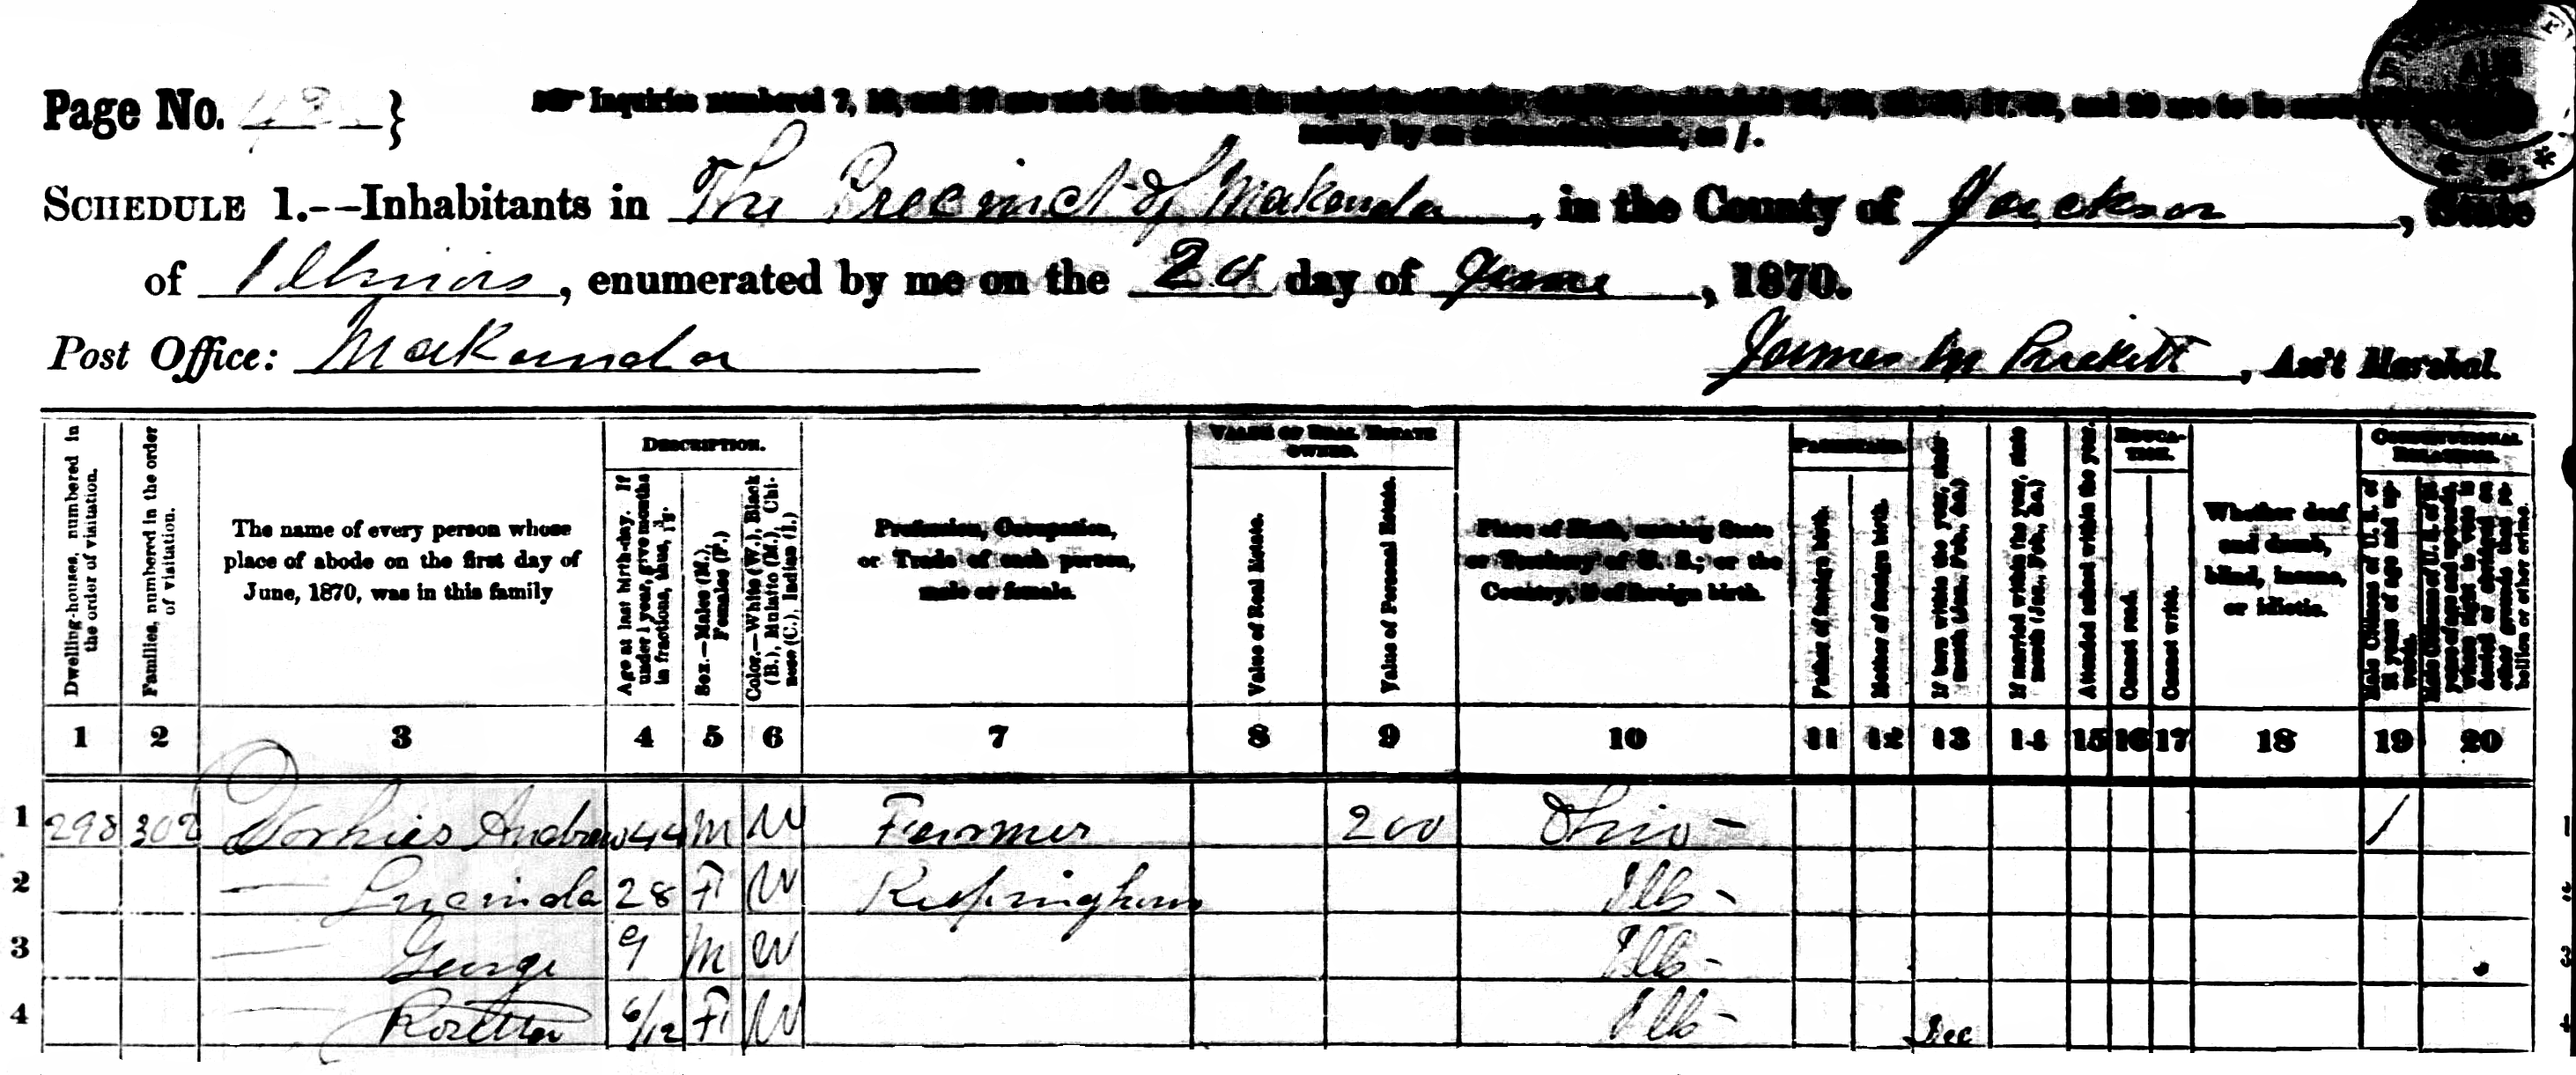 Page No. 43 }
Inquiries numbered 7, 16, and 17 are not to be
merely by an affirmative mark, as /.
SCHEDULE 1.--Inhabitants in The Precinct of Makanda, in the County of Jackson, State
of Illinois, enumerated by me on the 20 day of June, 1870.
Post Office: Makanda
James M Prickett, Ass't Marshal.
Dwelling-houses, numbered in the order of visitation.
Families, numbered in the order of visitation.
The name of every person whose
place of abode on the first day of
June, 1870, was in this family
DESCRIPTION.
Age at last birth-day. If under 1 year, give months in fractions, thus, 3/12.
Sex.—Males (M.), Females (F.)
Color.—White (W.), Black (B.), Mulatto (M.), Chinese (C.), Indian (I.)
Profession, Occupation,
or Trade of each person,
male or female.
VALUE OF REAL ESTATE
OWNED.
Value of Real Estate.
Value of Personal Estate.
Place of Birth, naming State
or Territory of U. S.; or the
Country, if of foreign birth.
PARENTAGE.
Father of foreign birth.
Mother of foreign birth.
If born within the year, state month (Jan. Feb., &c.)
If married within the year, state month (Jan., Feb., &c.)
Attended school within the year.
EDUCA-
TION.
Cannot read.
Cannot write.
Whether deaf
and dumb,
blind, insane,
or idiotic.
CONSTITUTIONAL
RELATIONS.
Male Citizens of U. S. of 21 years of age and upwards.
Male Citizens of U. S. of 21 years of age and upwards, whose right to vote is denied or abridged on other grounds than rebellion or other crime.
1 2 3 4 5 6 7 8 9 10 11 12 13 14 15 16 17 18 19 20
1 298 302 Vorhies Andrew 44 M W Farmer 200 Ohio - /
2 — Lucinda 28 F W Keeping house Ills -
3 — George 9 M W Ills -
4 — Rozetta 6/12 F W Ills - Dec